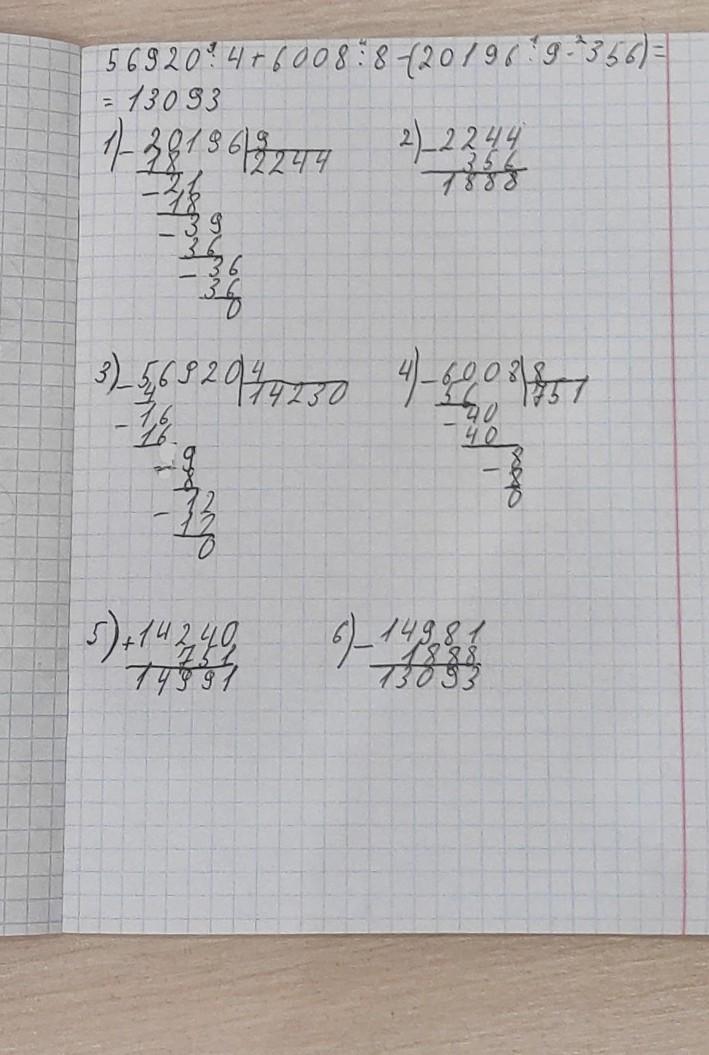 56920:4+6008:8-(20196:9-356)=
=13093
1) -20196|9
18 2244
-21
18
-39
36
-36
36
0
2) -2244
356
1888
3) -56920|4
4 14230
-16
16
-9
8
-12
12
0
4) -6008|8
56 751
-40
40
-8
8
0
5) +14240
751
14991
6) -14981
1888
13093